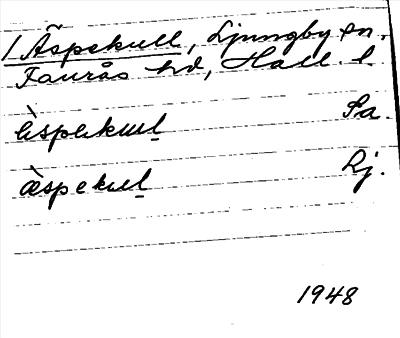 1 Äspekull, Ljungby sn.
Faurås hd, Hall. l
èspekul̲ Sa.
æ̀spekul̲ Lj.
1948